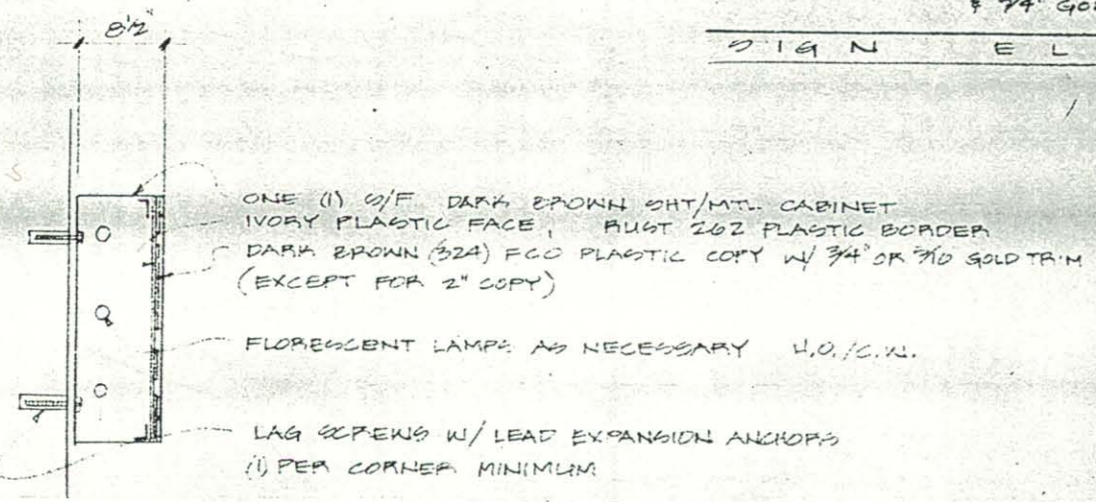 8 1/2"
& 3/4" GOL
SIGN EL
ONE (1) S/F DARK BROWN SHT/MTL. CABINET
IVORY PLASTIC FACE, RUST 262 PLASTIC BORDER
DARK BROWN (324) FCO PLASTIC COPY W/ 3/4" OR GOLD TRIM
(EXCEPT FOR 2" COPY)
FLORESCENT LAMPS AS NECESSARY H.O./C.W.
LAG SCREWS W/ LEAD EXPANSION ANCHORS
(1) PER CORNER MINIMUM